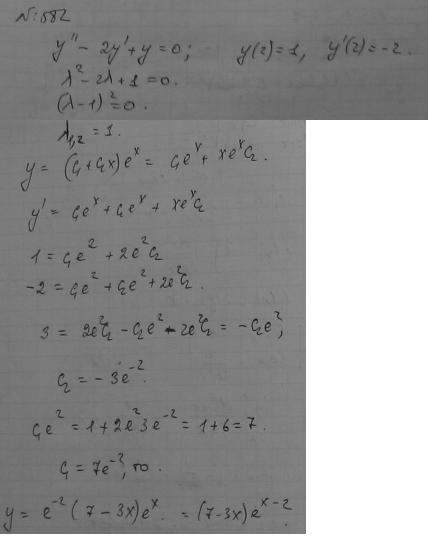 №582
y'' - 2y' + y = 0; y(2) = 1, y'(2) = -2.
λ² - 2λ + 1 = 0.
(λ-1)² = 0.
λ₁,₂ = 1.
y = (C₁ + C₂x)eˣ = C₁eˣ + xeˣC₂.
y' = C₁eˣ + C₂eˣ + xeˣC₂
1 = C₁e² + 2e²C₂
-2 = C₁e² + C₂e² + 2e²C₂.
3 = 2e²C₂ - C₂e² - 2e²C₂ = -C₂e²,
C₂ = -3e⁻².
C₁e² = 1 + 2e²3e⁻² = 1 + 6 = 7.
C₁ = 7e⁻², то.
y = e⁻²(7 - 3x)eˣ. = (7-3x)eˣ⁻².